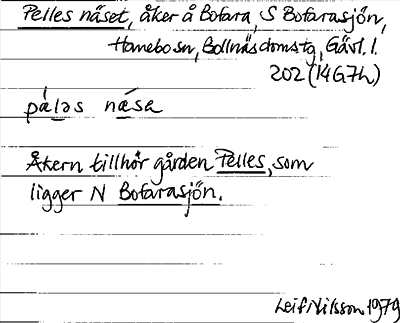 Pelles näset, åker å Bofara, S Bofarasjön,
Hanebo sn, Bollnäs domsg, Gävl. l.
202 (14G7h)
pàləs næsə
Åkern tillhör gården Pelles, som
ligger N Bofarasjön.
Leif Nilsson 1979